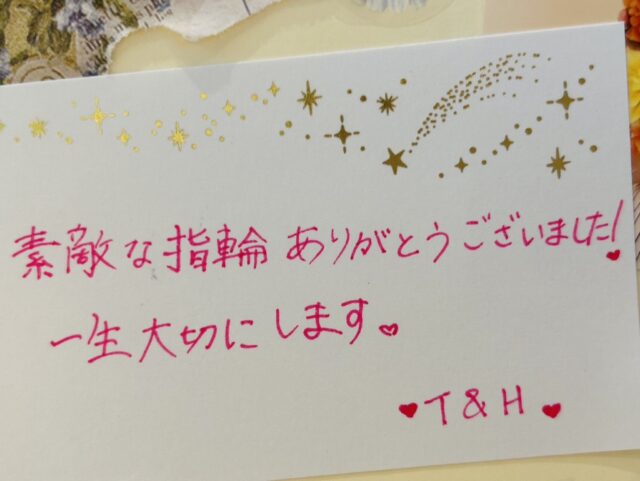 素敵な指輪 ありがとうございました!
一生大切にします
T & H